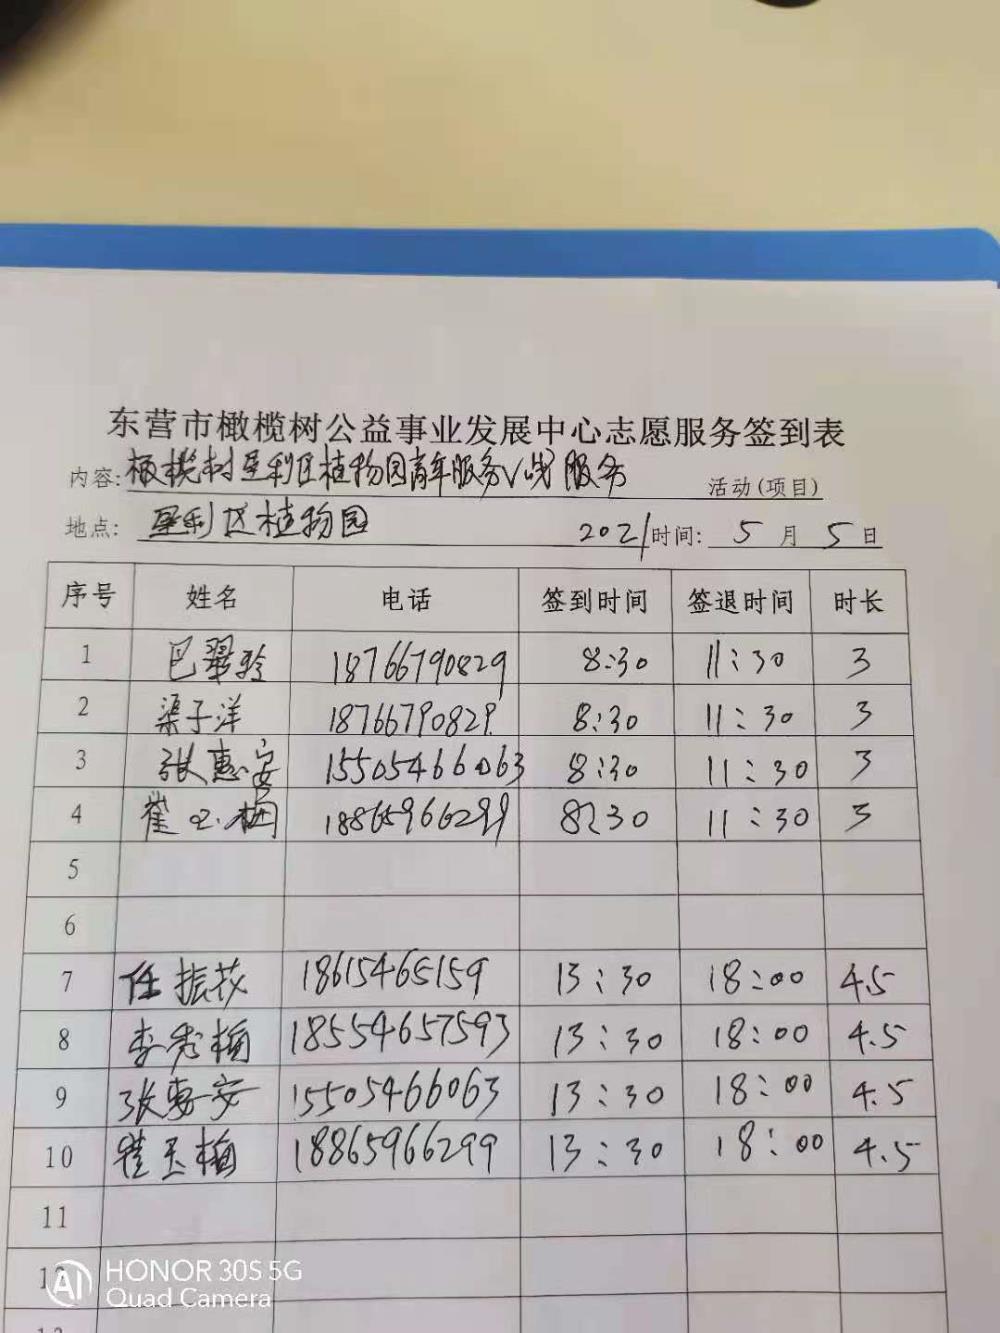 东营市橄榄树公益事业发展中心志愿服务签到表
内容: 橄榄树垦利区植物园青年服务V站服务 活动(项目)
地点: 垦利区植物园 2021 时间: 5 月 5 日
序号 姓名 电话 签到时间 签退时间 时长
1 巴翠玲 18766790829 8:30 11:30 3
2 渠子洋 18766790829 8:30 11:30 3
3 张惠安 15505466063 8:30 11:30 3
4 崔玉梅 18865966299 8:30 11:30 3
5
6
7 任振花 18615465159 13:30 18:00 4.5
8 李秀梅 18554657593 13:30 18:00 4.5
9 张惠安 15505466063 13:30 18:00 4.5
10 崔玉梅 18865966299 13:30 18:00 4.5
11
AI HONOR 30S 5G
Quad Camera